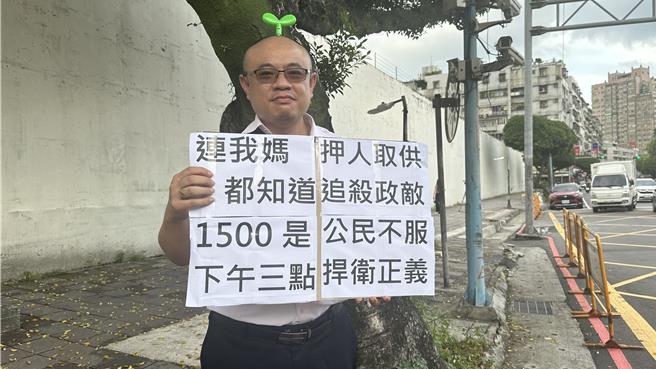 連我媽
都知道
1500是
下午三點
押人取供
追殺政敵
公民不服
捍衛正義